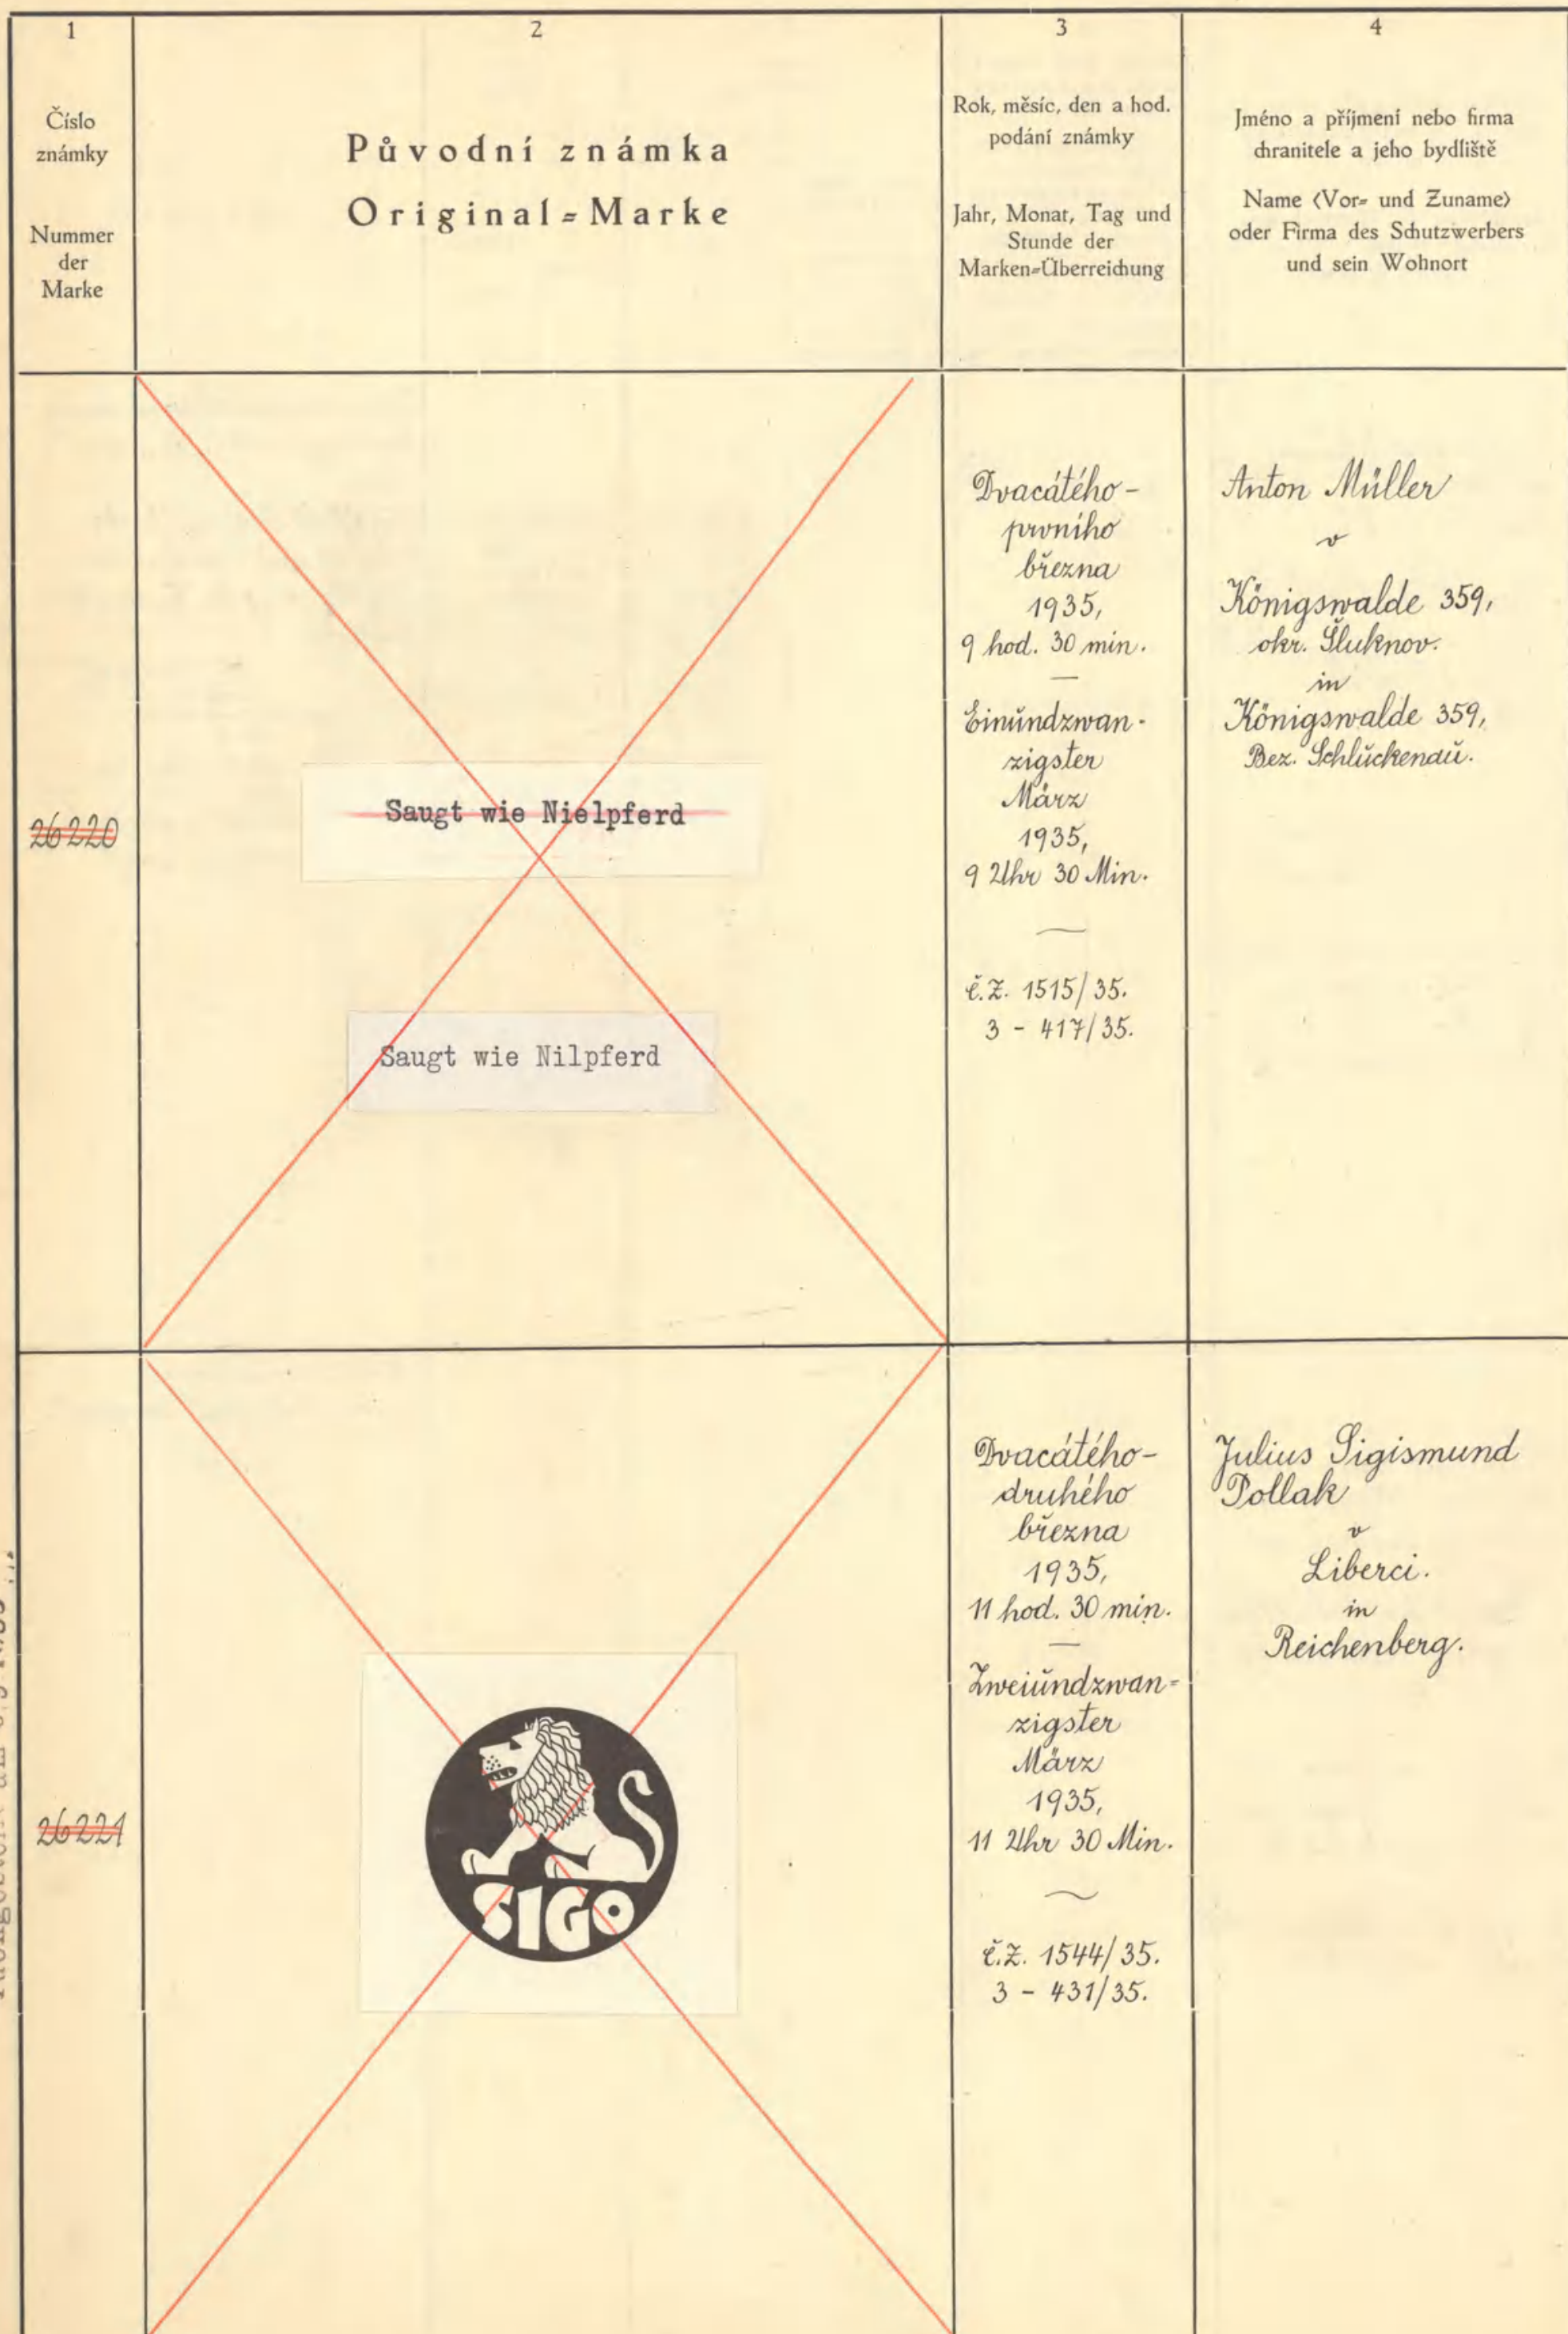 1
Číslo
známky
Nummer
der
Marke
2
Původní známka
Original=Marke
3
Rok, měsíc, den a hod.
podání známky
Jahr, Monat, Tag und
Stunde der
Marken=Überreichung
4
Jméno a příjmení nebo firma
chranitele a jeho bydliště
Name (Vor= und Zuname)
oder Firma des Schutzwerbers
und sein Wohnort
26220
Saugt wie Nielpferd
Saugt wie Nilpferd
Dvacátého-
prvního
března
1935,
9 hod. 30 min.
—
Einundzwan-
zigster
März
1935,
9 Uhr 30 Min.
č.ž. 1515/35.
3 - 417/35.
Anton Müller
v
Königswalde 359,
okr. Šluknov.
in
Königswalde 359,
Bez. Schluckenau.
26221
SIGO
Dvacátého-
druhého
března
1935,
11 hod. 30 min.
—
Zweiundzwan=
zigster
März
1935,
11 Uhr 30 Min.
č.ž. 1544/35.
3 - 431/35.
Julius Sigismund
Pollak
v
Liberci.
in
Reichenberg.